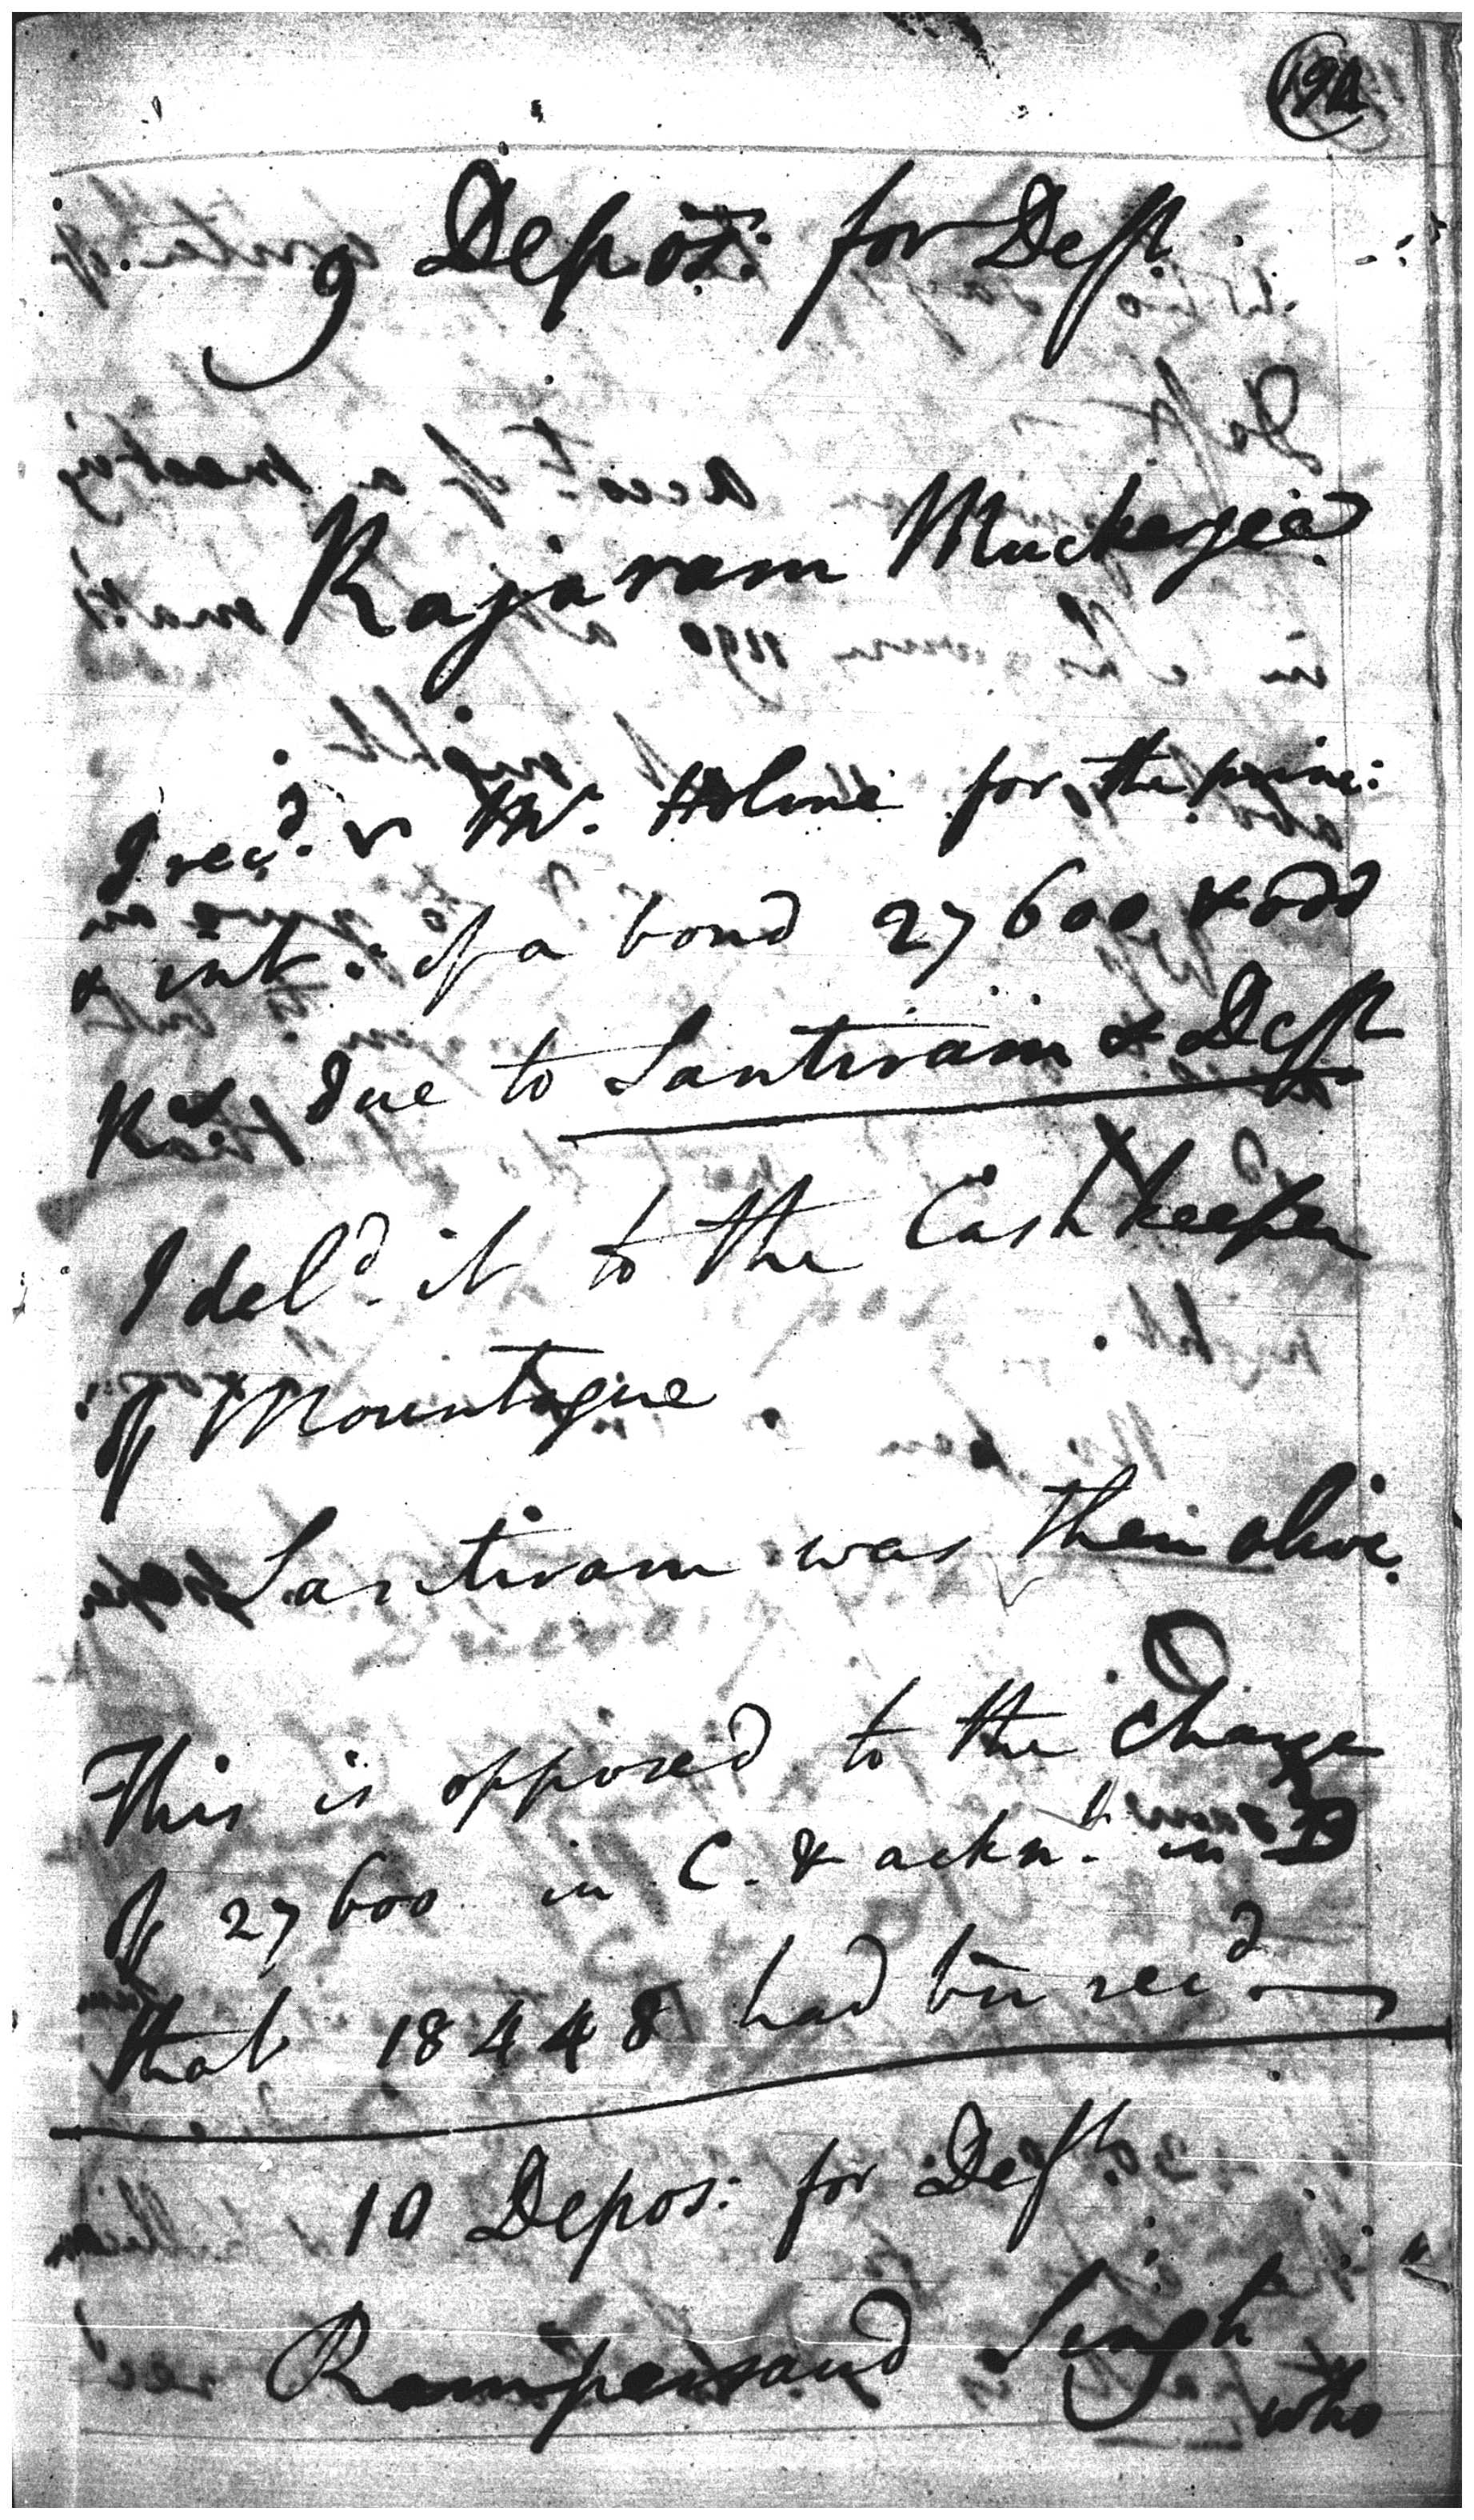 9 Depos: for Deft
Rajaram Muckerjee
I recd. Mr. Holme for the princ:
& int: of a bond 27600 & odd
Rs due to Santiram & Deft
I deld. it to the Cash keeper
of Mountague
Santiram was then alive.
This is opposed to the Charge
of 27600 in C. & acknt. in B
that 18448 had bin recd.
10 Depos: for Deft
Rampersaud Singh
who